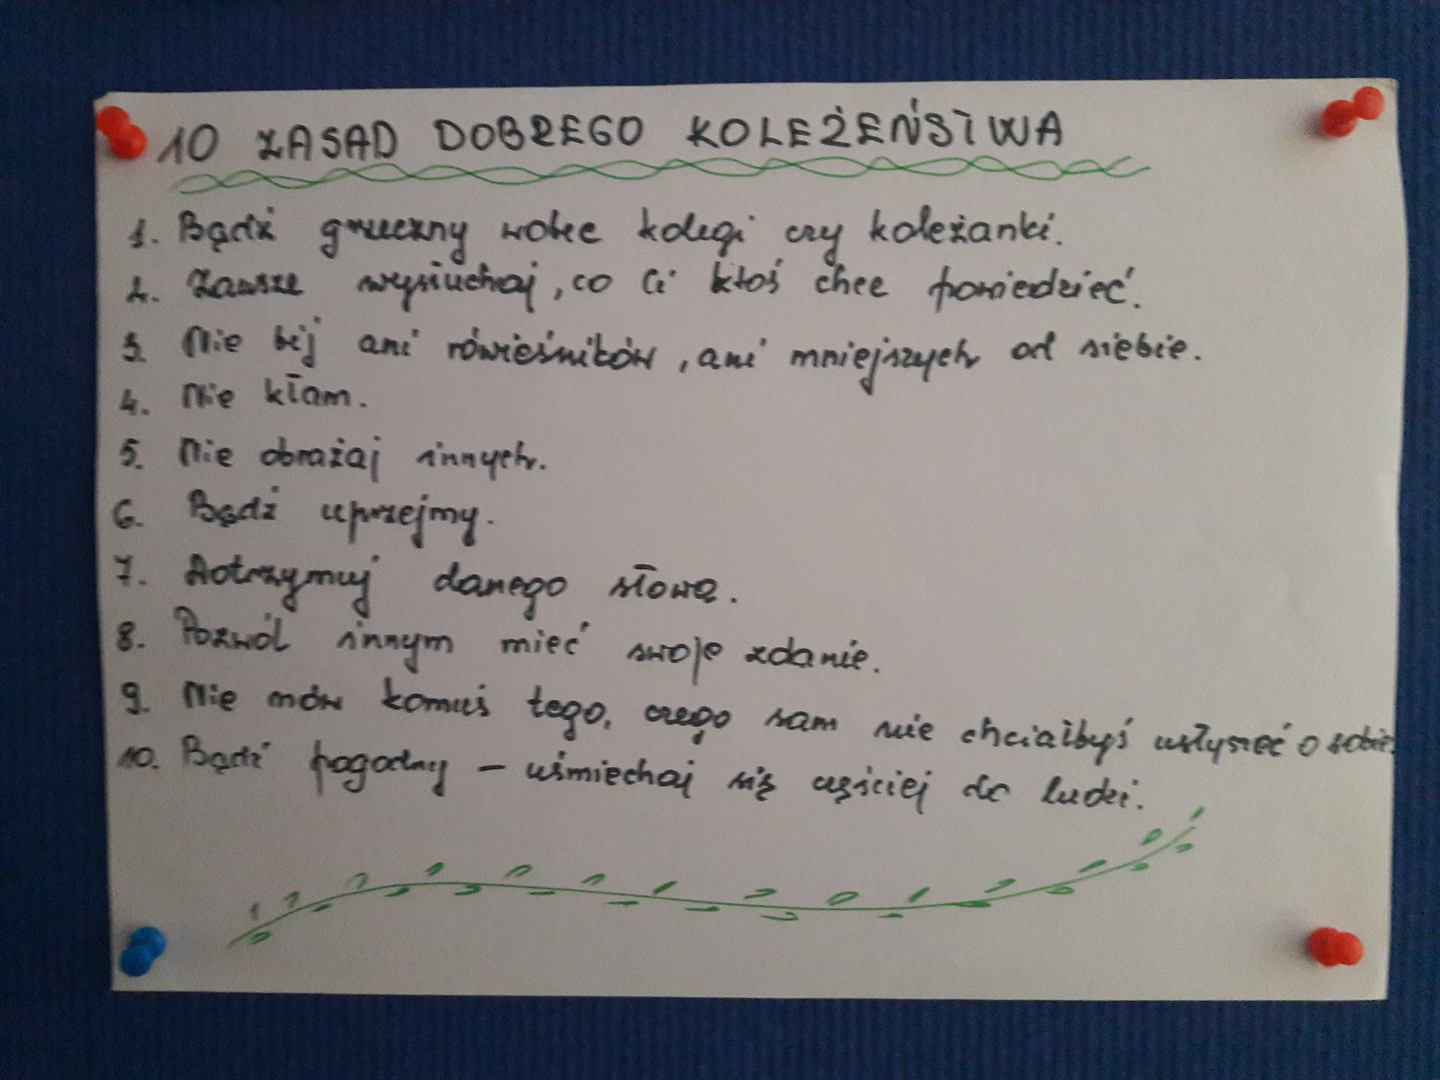 10 ZASAD DOBREGO KOLEŻEŃSTWA
1. Bądź grzeczny wobec kolegi czy koleżanki.
2. Zawsze wysłuchaj, co Ci ktoś chce powiedzieć.
3. Nie bij ani rówieśników, ani mniejszych od siebie.
4. Nie kłam.
5. Nie obrażaj innych.
6. Bądź uprzejmy.
7. Dotrzymuj danego słowa.
8. Pozwól innym mieć swoje zdanie.
9. Nie mów komuś tego, czego sam nie chciałbyś usłyszeć o sobie.
10. Bądź pogodny – uśmiechaj się częściej do ludzi.